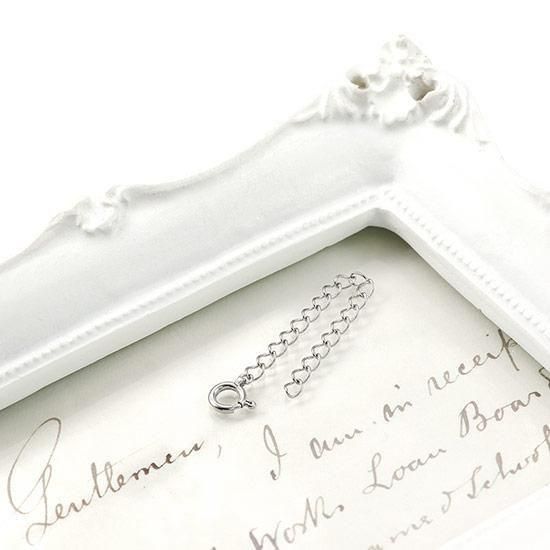 Gentlemen, I am in receip
Works Loan Boar
named School